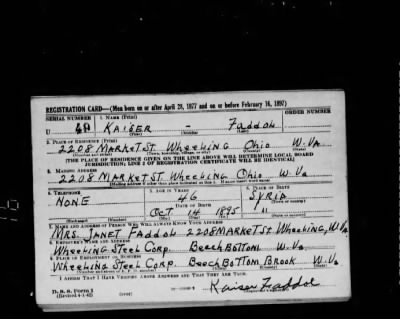 REGISTRATION CARD—(Men born on or after April 28, 1877 and on or before February 16, 1897)
SERIAL NUMBER 1. NAME (Print) ORDER NUMBER
U KAISER - FADDOL
(First) (Middle) (Last)
2. PLACE OF RESIDENCE (Print)
2208 MARKET ST WHEELING OHIO W. VA
[THE PLACE OF RESIDENCE GIVEN ON THE LINE ABOVE WILL DETERMINE LOCAL BOARD
JURISDICTION; LINE 2 OF REGISTRATION CERTIFICATE WILL BE IDENTICAL]
3. MAILING ADDRESS
2208 MARKET ST WHEELING OHIO W. Va
[Mailing address if other than place indicated on line 2. If same insert word same]
4. TELEPHONE 5. AGE IN YEARS 6. PLACE OF BIRTH
NONE 46 SYRIA
DATE OF BIRTH
OCT 14 1895
7. NAME AND ADDRESS OF PERSON WHO WILL ALWAYS KNOW YOUR ADDRESS
MRS. JANET FADDOL 2208 MARKET ST WHEELING, W. Va
8. EMPLOYER'S NAME AND ADDRESS
WHEELING STEEL CORP. BEECH BOTTOM W. Va
9. PLACE OF EMPLOYMENT OR BUSINESS
WHEELING STEEL CORP. BEECH BOTTOM BROOK W. Va
I AFFIRM THAT I HAVE VERIFIED ABOVE ANSWERS AND THAT THEY ARE TRUE.
D. S. S. Form 1
(Revised 4-1-42) (over)
Kaiser Faddol